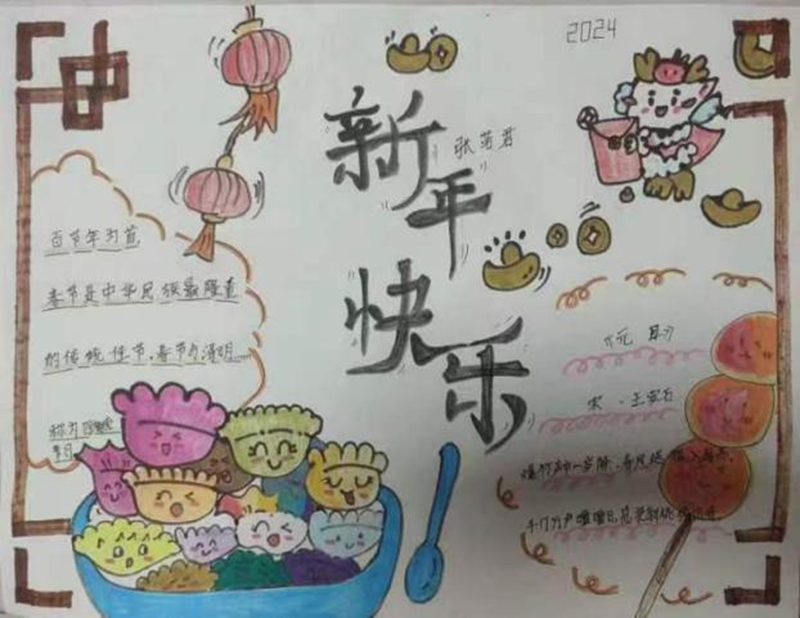 2024
新年快乐
百节年为首
春节是中华民族最隆重
的传统佳节。春节与清明……
称为四
节日
《元日》
宋·王安石
爆竹声中一岁除，春风送暖入屠苏。
千门万户曈曈日，总